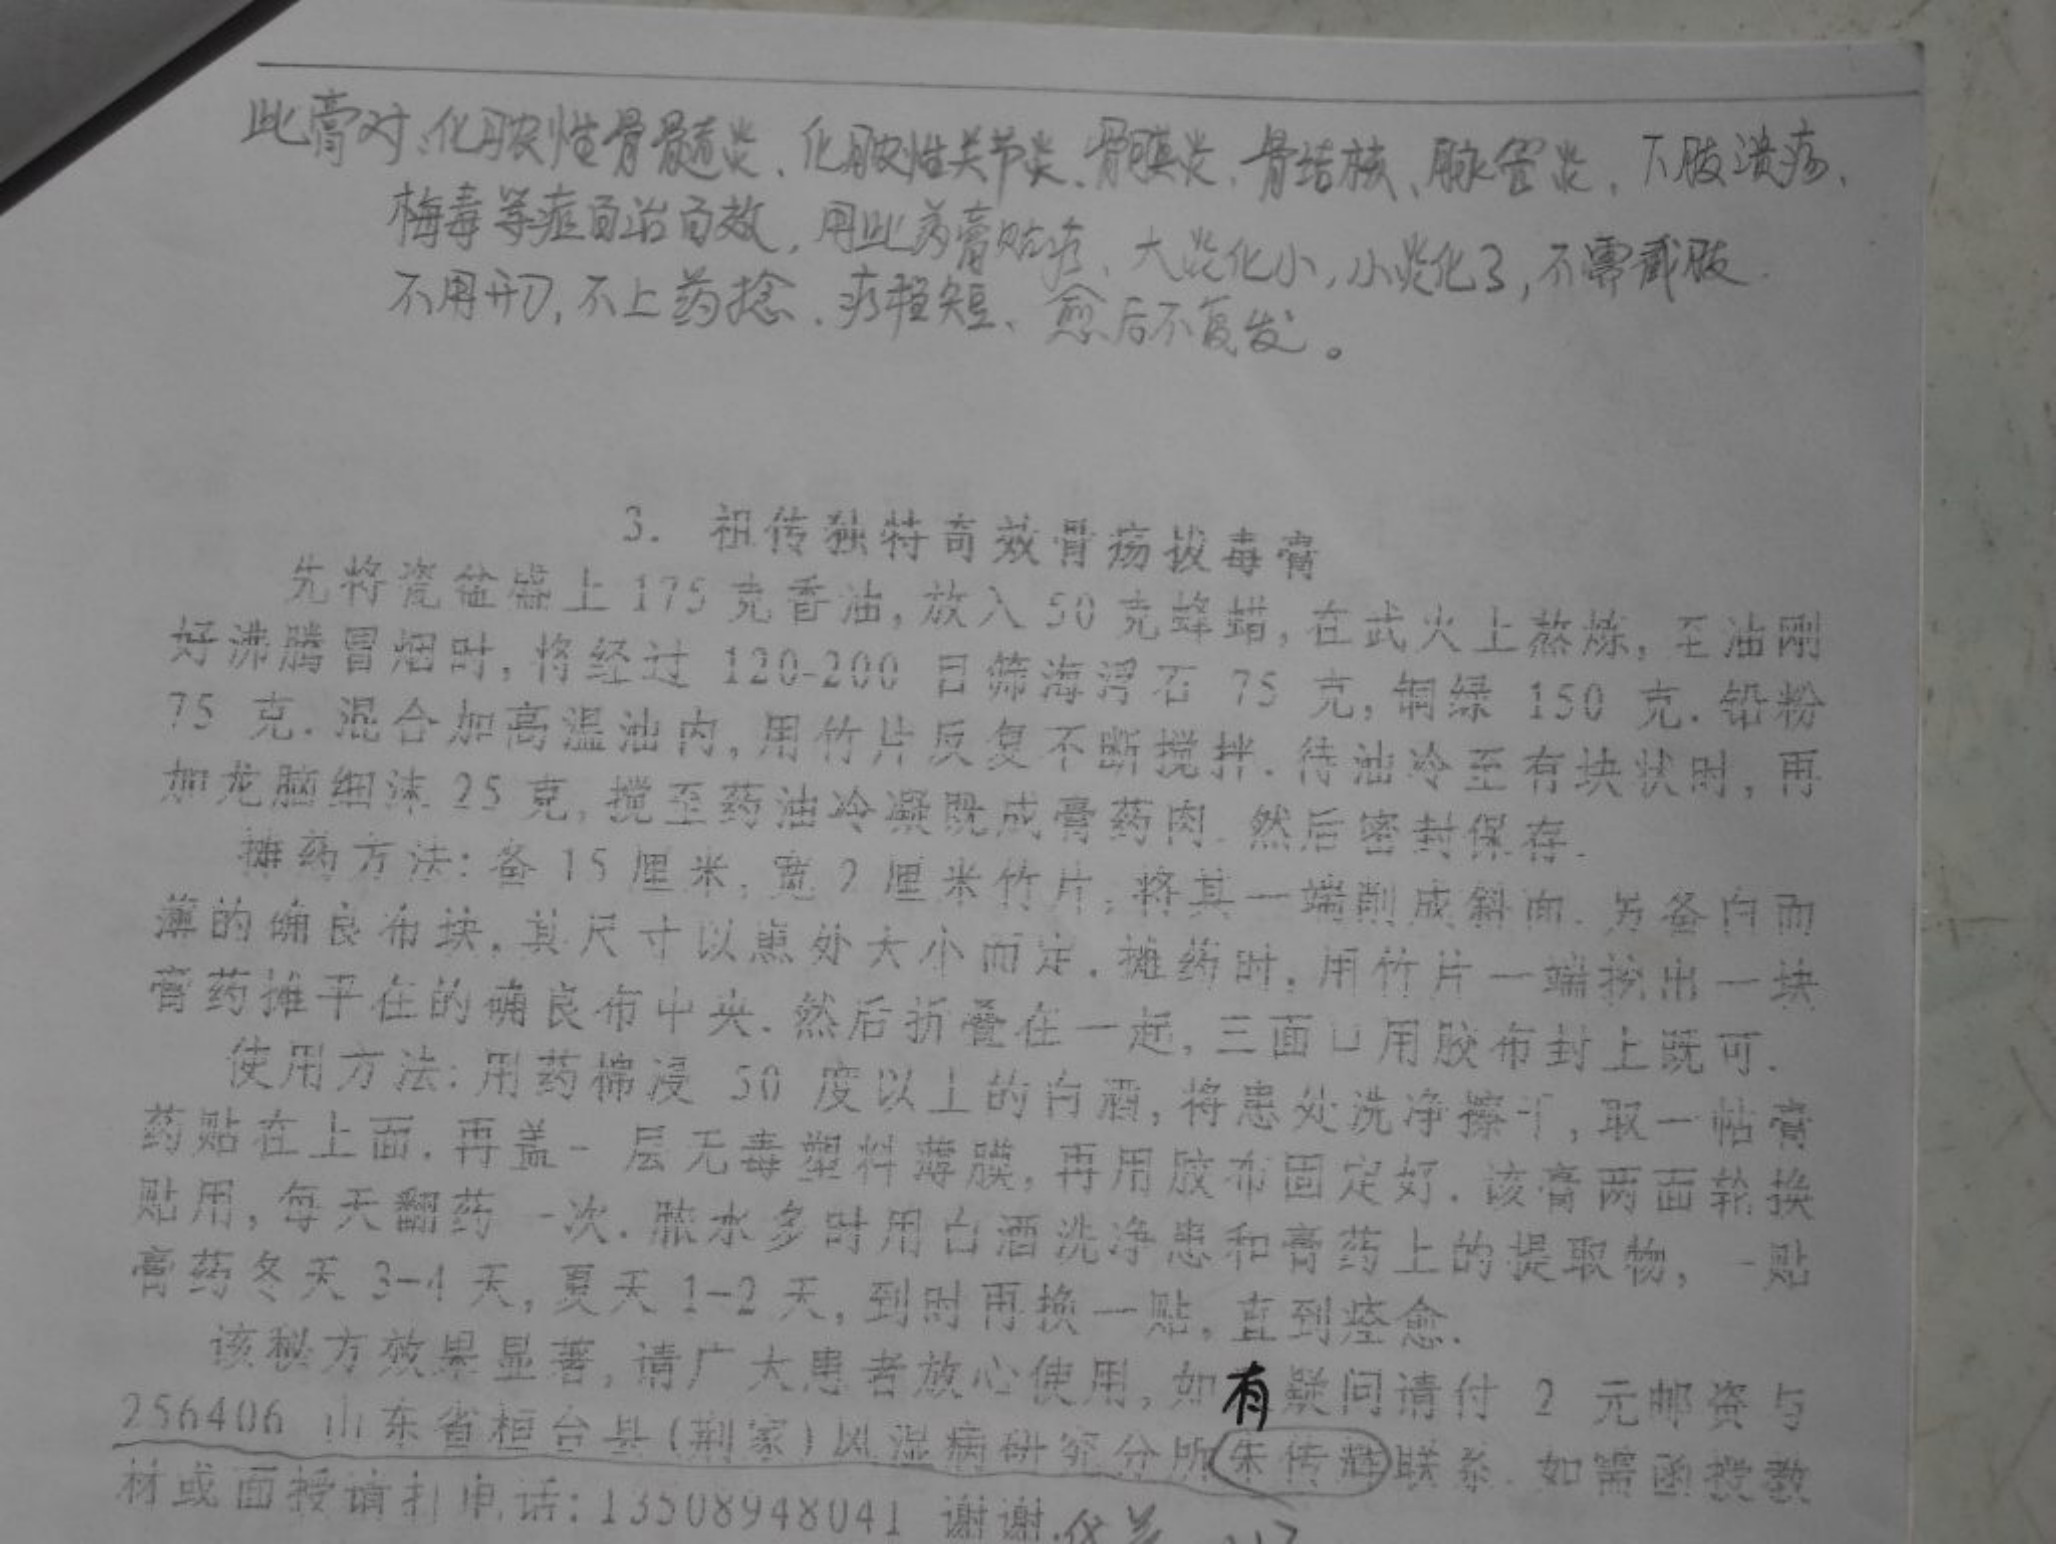 此膏对、化脓性骨骨髓炎、化脓性关节炎、骨膜炎、骨结核、脉管炎、下肢溃疡、
梅毒等症百治百效，用此药膏贴疗、大炎化小，小炎化了，不需截肢
不用开刀，不上药捻、疗程短、愈后不复发。
3. 祖传独特奇效骨疡拔毒膏
先将瓷盆盛上175克香油，放入50克蜂蜡，在武火上熬炼，至油刚
好沸腾冒烟时，将经过120-200目筛海浮石75克，铜绿150克.铅粉
75克.混合加高温油内，用竹片反复不断搅拌.待油冷至有块状时，再
加龙脑细沫25克，搅至药油冷凝既成膏药肉.然后密封保存.
摊药方法：备15厘米，宽2厘米竹片，将其一端削成斜面.另备白而
薄的确良布块.其尺寸以患处大小而定.摊药时，用竹片一端挖出一块
膏药摊平在的确良布中央.然后折叠在一起，三面口用胶布封上既可.
使用方法：用药棉浸50度以上的白酒，将患处洗净擦干，取一帖膏
药贴在上面.再盖一层无毒塑料薄膜，再用胶布固定好.该膏两面轮换
贴用，每天翻药一次.脓水多时用白酒洗净患和膏药上的提取物，一贴
膏药冬天3-4天，夏天1-2天，到时再换一贴，直到痊愈.
该秘方效果显著，请广大患者放心使用，如有疑问请付2元邮资与
256406 山东省桓台县(荆家)风湿病研究分所朱传辉联系.如需函授教
材或面授请打电话：13508948041 谢谢.